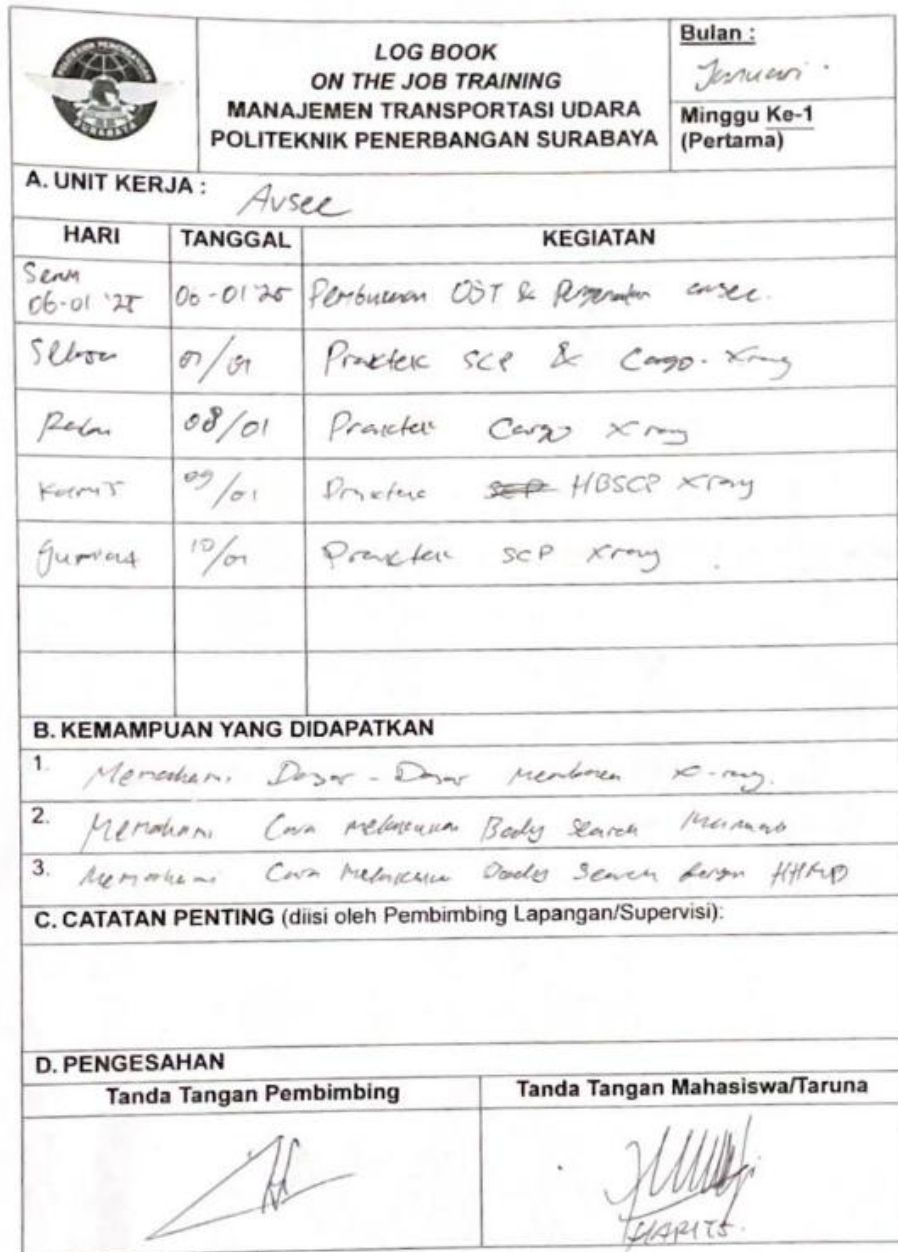 POLITEKNIK PENERBANGAN
SURABAYA
LOG BOOK
ON THE JOB TRAINING
MANAJEMEN TRANSPORTASI UDARA
POLITEKNIK PENERBANGAN SURABAYA
Bulan :
Januari
Minggu Ke-1
(Pertama)
A. UNIT KERJA : Avsec
HARI TANGGAL KEGIATAN
Senin
06-01 '25 06-01 '25 Pembukaan OJT & Pengenalan avsec.
Selasa 07/01 Praktek SCP & Cargo Xray
Rabu 08/01 Praktek Cargo Xray
Kamis 09/01 Praktek HBSCP Xray
Jumat 10/01 Praktek SCP Xray
B. KEMAMPUAN YANG DIDAPATKAN
1. Memahami Dasar - Dasar membaca X-ray.
2. Memahami Cara melakukan Body Search Manual
3. Memahami Cara melakukan Body Search dengan HHMD
C. CATATAN PENTING (diisi oleh Pembimbing Lapangan/Supervisi):
D. PENGESAHAN
Tanda Tangan Pembimbing Tanda Tangan Mahasiswa/Taruna
HARITS.